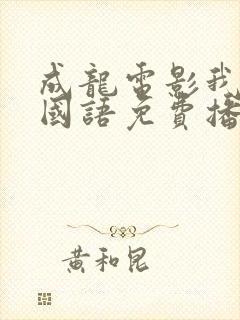 成龍電影我
國語免費播
黃和昆